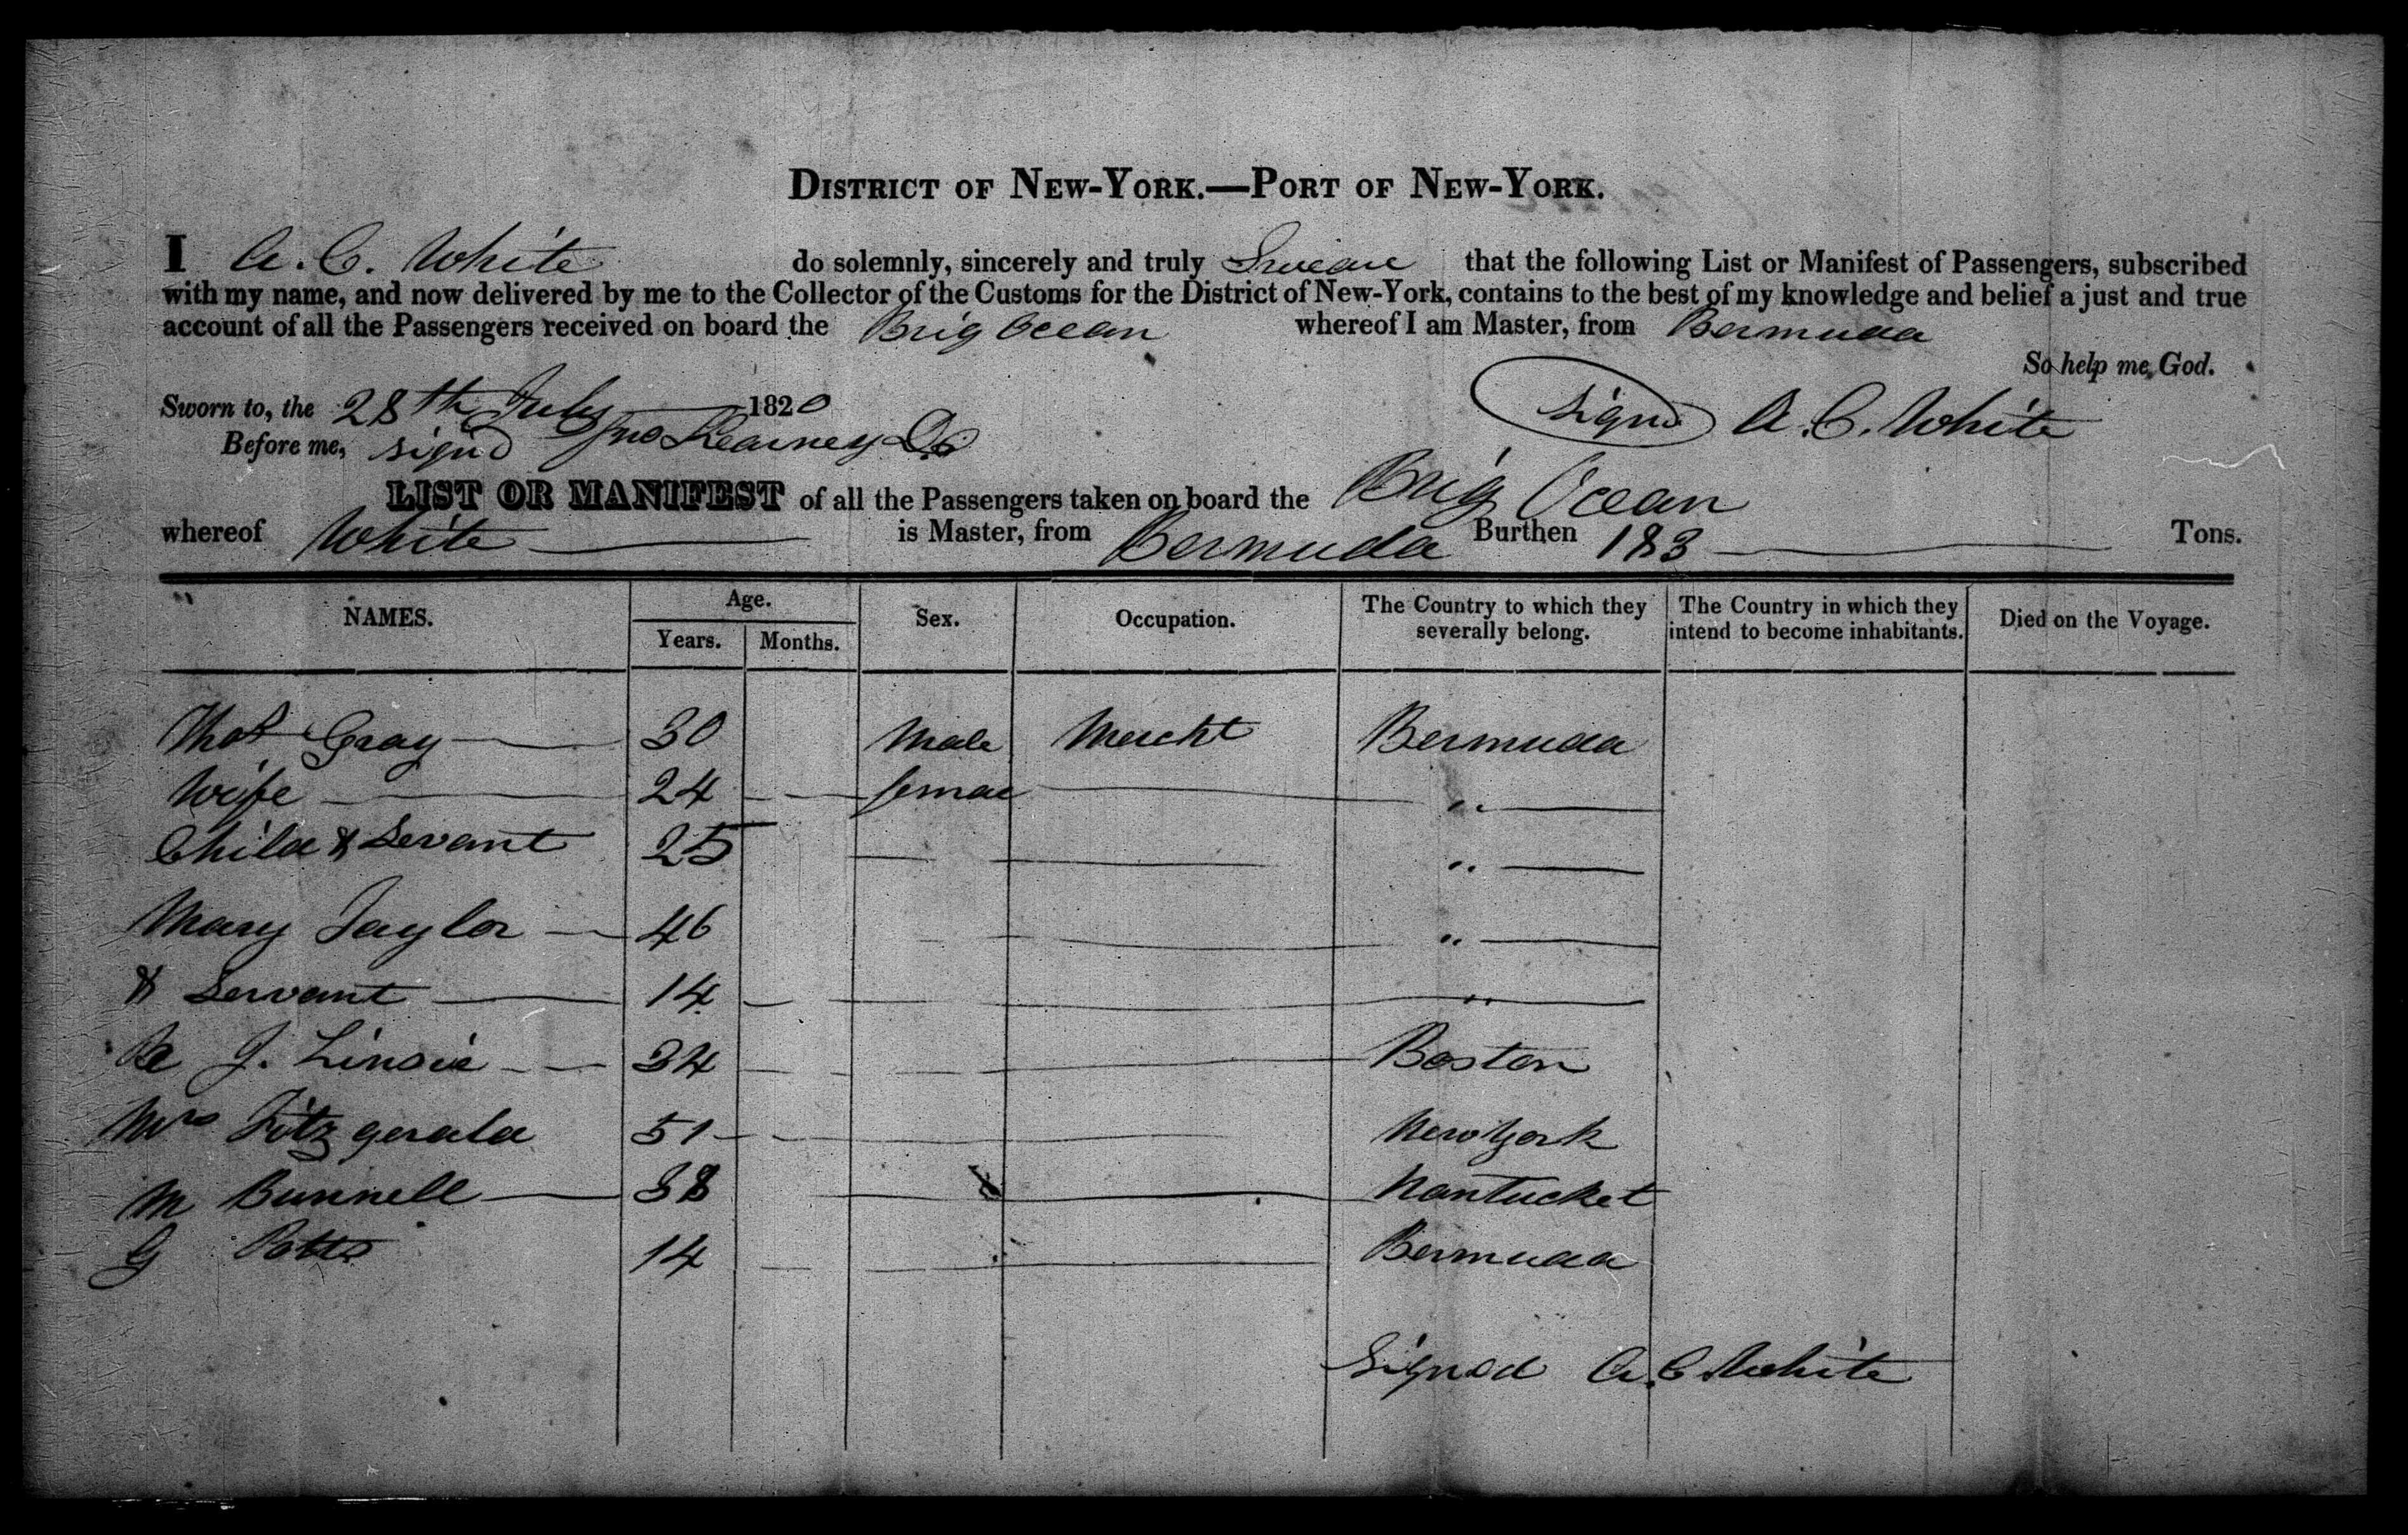 DISTRICT OF NEW-YORK.—PORT OF NEW-YORK.
I A. C. White do solemnly, sincerely and truly Swear that the following List or Manifest of Passengers, subscribed
with my name, and now delivered by me to the Collector of the Customs for the District of New-York, contains to the best of my knowledge and belief a just and true
account of all the Passengers received on board the Brig Ocean whereof I am Master, from Bermuda
So help me God.
Sworn to, the 28th July 1820 Signd A. C. White
Before me, signd Jno Kearney
LIST OR MANIFEST of all the Passengers taken on board the Brig Ocean
whereof White is Master, from Bermuda Burthen 183 Tons.
NAMES. Age. Years. Months. Sex. Occupation. The Country to which they severally belong. The Country in which they intend to become inhabitants. Died on the Voyage.
Thos Gray 30 Male Mercht Bermuda
Wife 24 female "
Child & Servant 25 "
Mary Taylor 46 "
& Servant 14 "
J. Linsie 34 Boston
Mrs Fitzgerald 51 New York
M Bunnell 38 Nantucket
G Potts 14 Bermuda
Signed A. C. White